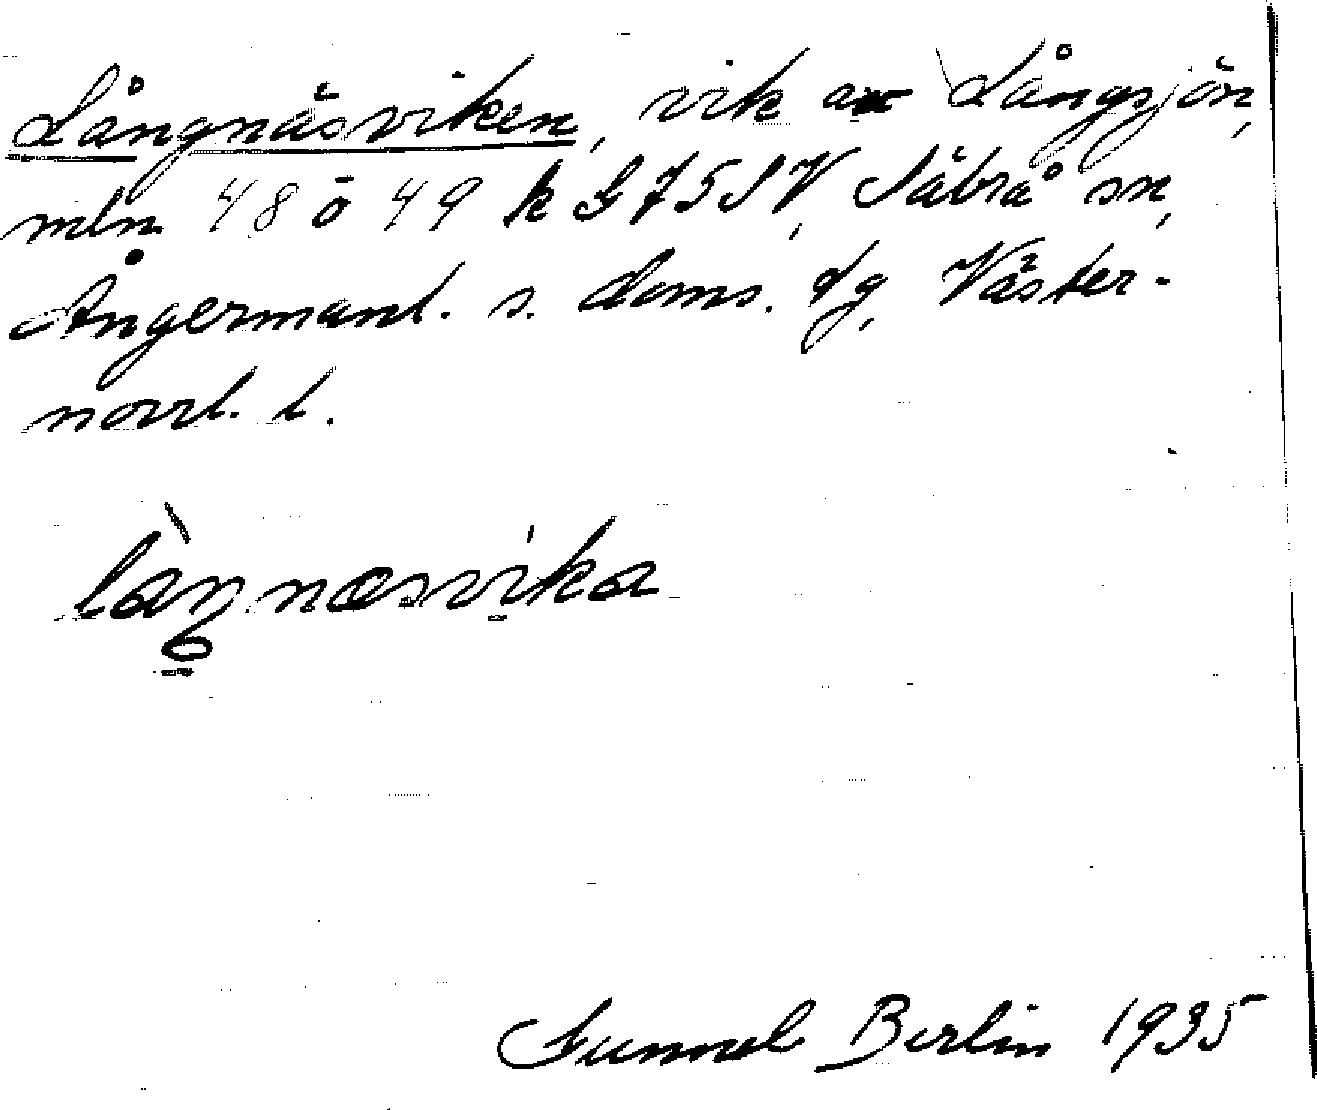 Långnäsviken, vik av Långsjön,
mln 48 o 49 k G 75 SV, Säbrå sn,
Ångermanl. s. doms. dg, Väster-
norrl. l.
làŋnæsvika
Gunnel Berlin 1935